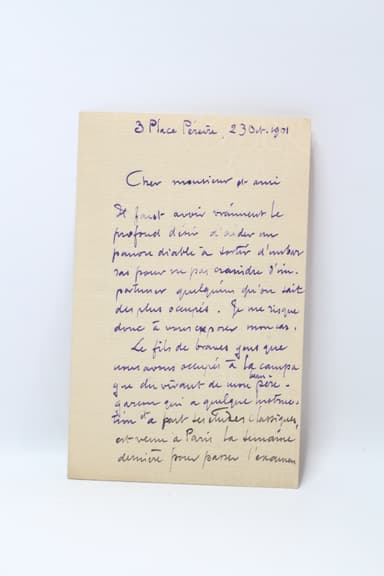 3 Place Péreire, 23 Oct. 1901
Cher monsieur et ami
Il faut avoir vraiment le
profond désir d'aider un
pauvre diable à sortir d'embar
ras pour ne pas craindre d'im-
portuner quelqu'un qu'on sait
des plus occupés. Je me risque
donc à vous exposer mon cas.
Le fils de braves gens que
nous avons occupés à la campa
gne du vivant de mon beau père -
garçon qui a quelque instruc-
tion et a fait ses études classiques,
est venu à Paris la semaine
dernière pour passer l'examen